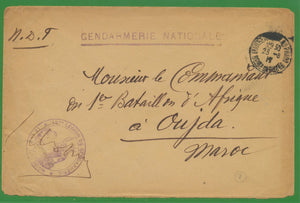 GENDARMERIE NATIONALE
N.D.F
Monsieur le Commandant
du 1er Bataillon d'Afrique
à Oujda
Maroc